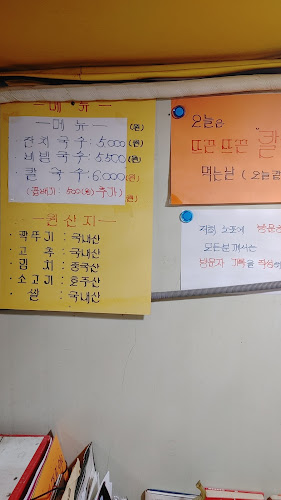 - 메 뉴 -
- 메 뉴 - (원)
· 잔치 국수 : 5,000 (원)
· 비빔 국수 : 5,500 (원)
· 칼 국수 : 6,000 (원)
(곱빼기 : 500(원) 추가)
(원)
- 원 산 지 -
· 깍뚜기 : 국내산
· 고 추 : 국내산
· 김 치 : 중국산
· 소고기 : 호주산
· 쌀 : 국내산
오늘은
따끈 따끈 칼
먹는날 (오늘같
저희 점포에 방문하
모든분께서는
방문자 기록을 작성하